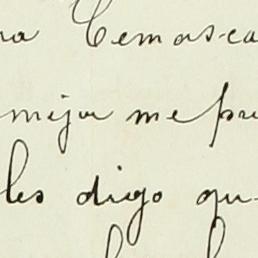 na Temasca
mejor me pre
les digo qu